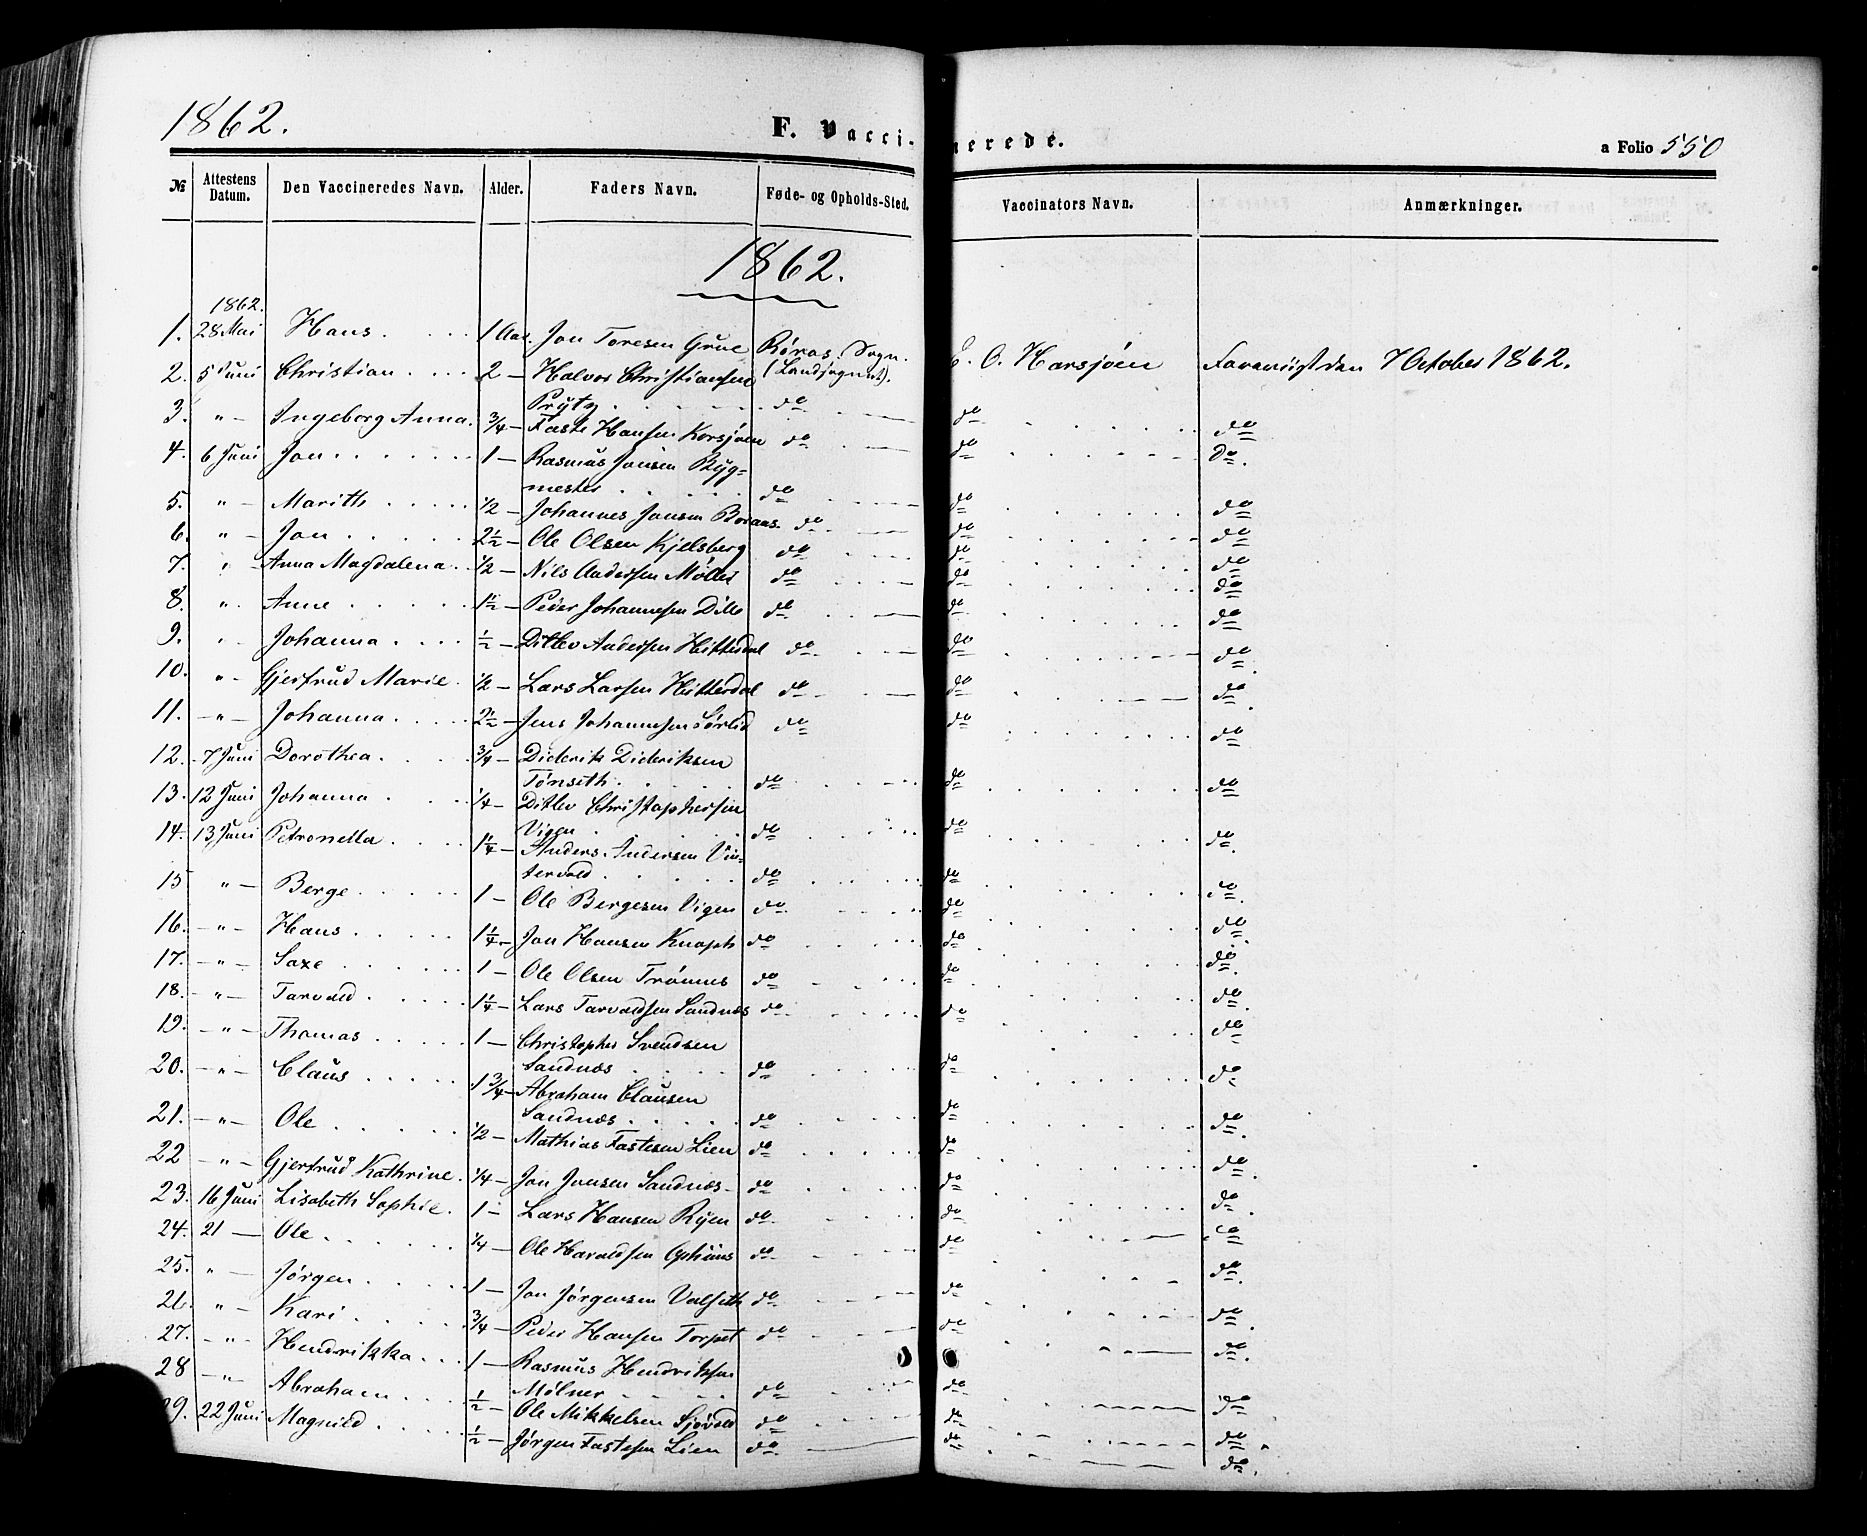 1862.
F. Vacci-nerede.
a Folio 550
№ Attestens Datum. Den Vaccineredes Navn. Alder. Faders Navn. Føde- og Opholds-Sted. Vaccinators Navn. Anmærkninger.
1862.
1862.
1. 28 Mai Hans. 1 Aar Jon Toresen Grue Røros Sogn. (Landsognet). E. O. Harsjøen Foreviist den 7 October 1862.
2. 5 Juni Christian 2 — Halvor Christiansen
Prytz do do do
3. " — Ingeborg Anna. 3/4 — Faste Hansen Korsjøen do do do.
4. 6 Juni Jon 1 — Rasmus Jonsen Byg=
mester do do do
5. " — Marith 1/2 — Johannes Jonsen Boraas. do do do
6. " — Jon 2 1/2 — Ole Olsen Kjelsberg do do do
7. " Anna Magdalena. 1/2 — Nils Andersen Møller do do do
8. " Anne 1 1/2 — Peder Johannesen Dille do do do
9. " Johanna 1/2 — Ditlev Andersen Hitterdal do do do.
10. " — Gjertrud Marie. 1/2 — Lars Larsen Hitterdal do do do.
11. — " — Johanna 2 1/2 — Jens Johannesen Sørlid do do do
12. 7 Juni Dorothea. 3/4 — Diderik Dideriksen
Tønseth. do do do
13. 12 Juni Johanna 1/4 — Ditlev Christophersen
Vigen do do do.
14. 13 Juni Petronella 1 1/4 — Anders Andersen Vin=
tervold do do do.
15 " — Berge 1 — Ole Bergesen Vigen do do do
16. — " — Hans 1 1/4 — Jon Hansen Knoph do do do.
17. — " — Saxe 1 — Ole Olsen Trønnes do do do
18. — " — Tarvald 1 1/4 — Lars Tarvaldsen Sandnæs do do do
19. — " — Thomas 1 — Christopher Svendsen
Sandnæs do do do
20. — " — Claus 1 3/4 — Abraham Clausen
Sandnæs do do do.
21. — " — Ole 1/2 — Mathias Fastesen Lien do do do.
22 — " — Gjertrud Kathrine. 1/4 — Jon Jonsen Sandnæs do do do.
23. 16 Juni Lisabeth Sophie. 1 — Lars Hansen Ryen do do do
24. 21 — Ole 1/4 — Ole Haraldsen Ophuus do do do.
25. " — Jørgen 1 — Jon Jørgensen Valseth do do do.
26. " — Kari 3/4 — Peder Hansen Torpet do do do.
27. — " — Hendrikka 1 — Rasmus Hendriksen
Mølner do do do
28 — " — Abraham 1/2 — Ole Mikkelsen Sjøvold do do do
29. 22 Juni Magnild 1/2 — Jørgen Fastesen Lien do do do.